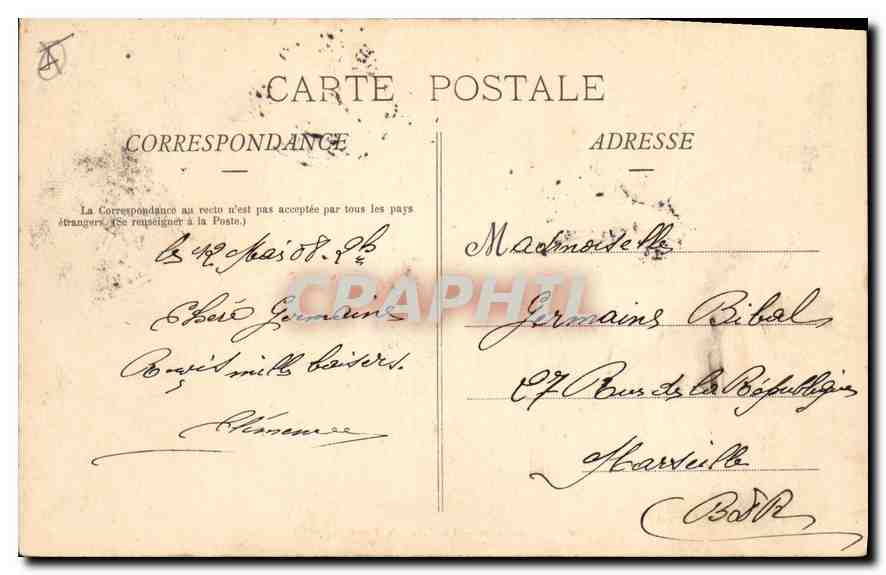 CARTE POSTALE
CORRESPONDANCE
La Correspondance au recto n'est pas acceptée par tous les pays
étrangers. (Se renseigner à la Poste.)
le 12 Mai 08. 2h
Chère Germaine
mille baisers.
Clémence
ADRESSE
Mademoiselle
Germaine Bibal
27 Rue de la République
Marseille
BdR
CPAPHIL